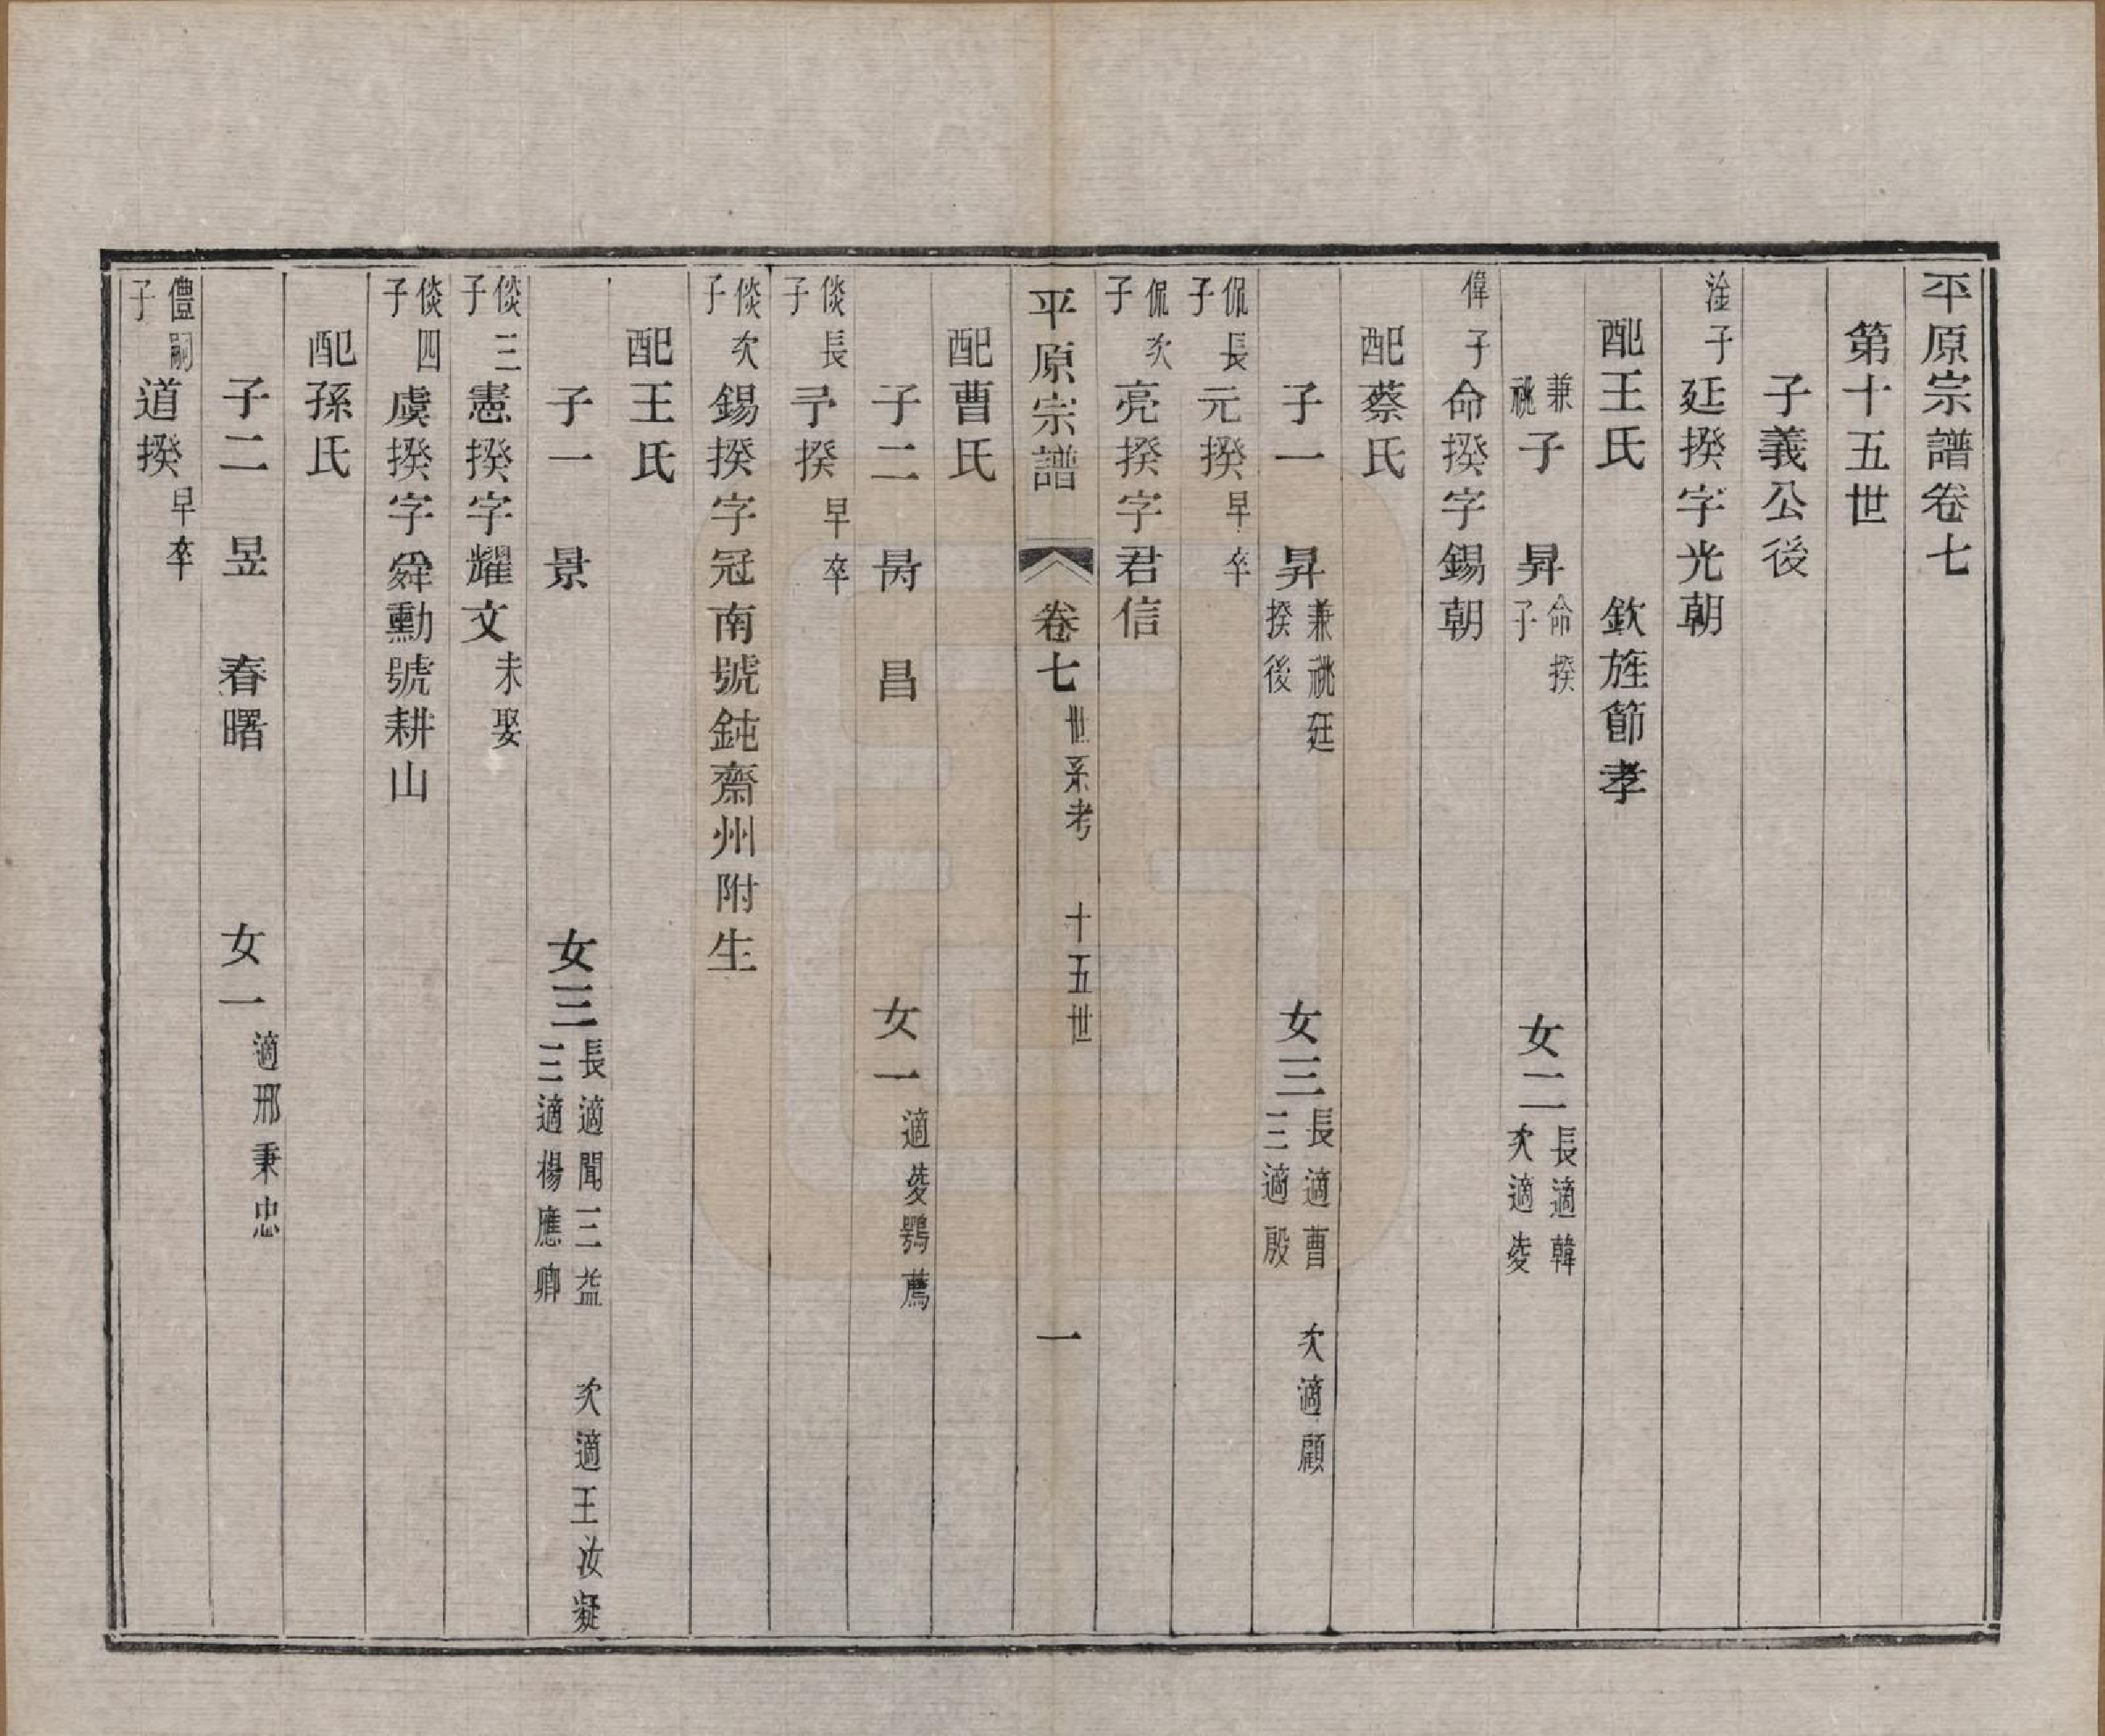 平原宗譜卷七
第十五世
子義公後
淦子延揆字光朝
配王氏 欽旌節孝
兼祧子 昇命揆子 女二長適韓次適夌
偉子命揆字錫朝
配蔡氏
子一 昇兼祧廷揆後 女三長適曹 次適顧三適殷
侃長子元揆早卒
侃次子亮揆字君信
平原宗譜 卷七世系考 十五世 一
配曹氏
子二 昺 昌 女一適夌鶚薦
倓長子予揆早卒
倓次子錫揆字冠南號鈍齋州附生
配王氏
子一 景 女三長適聞三益 次適王汝凝三適楊應卿
倓三子憲揆字耀文未娶
倓四子虞揆字舜勳號耕山
配孫氏
子二 昱 春曙 女一適邢秉忠
僼嗣子道揆早卒